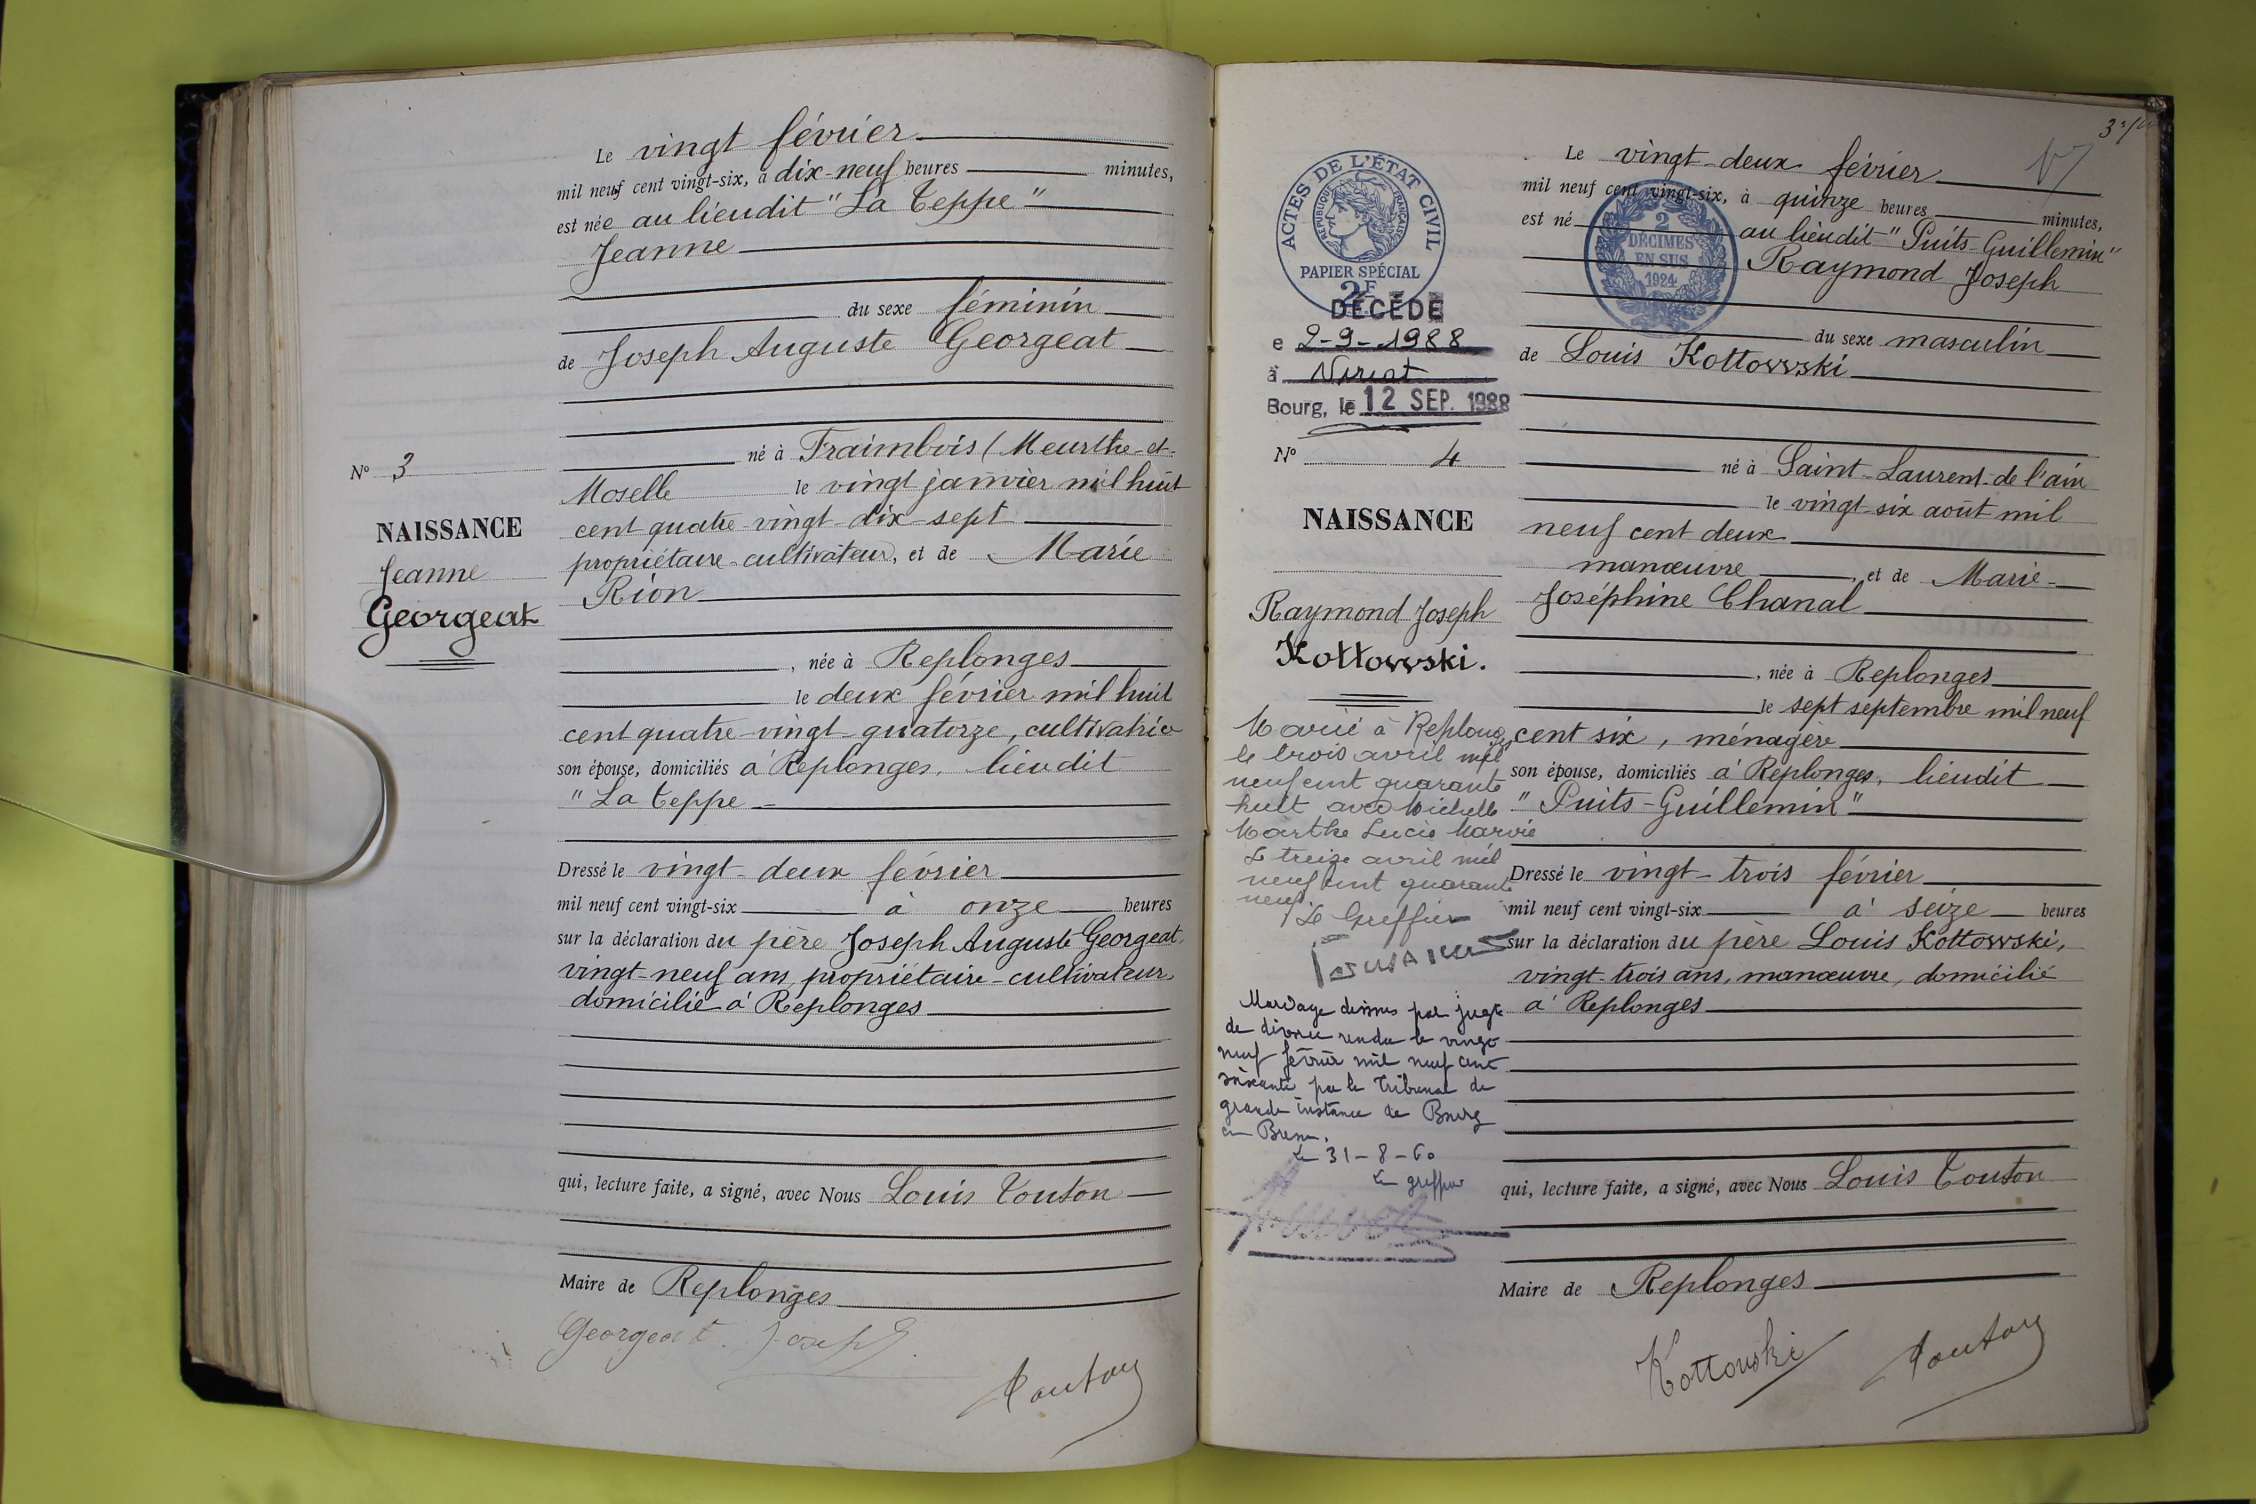 Le vingt février
mil neuf cent vingt-six, à dix-neuf heures minutes,
est née au lieudit "La Teppe"
Jeanne
du sexe féminin
de Joseph Auguste Georgeat
né à Fraimbois (Meurthe-et-
Moselle le vingt janvier mil huit
cent quatre-vingt-dix-sept
propriétaire-cultivateur, et de Marie
Rion
, née à Replonges
le deux février mil huit
cent quatre-vingt-quatorze, cultivatrice
son épouse, domiciliés à Replonges, lieudit
"La Teppe
Dressé le vingt-deux février
mil neuf cent vingt-six à onze heures
sur la déclaration du père Joseph Auguste Georgeat,
vingt-neuf ans, propriétaire-cultivateur,
domicilié à Replonges
qui, lecture faite, a signé, avec Nous Louis Touton
Maire de Replonges
Georgeat Joseph
Touton
N° 3
NAISSANCE
Jeanne
Georgeat
ACTES DE L'ÉTAT CIVIL
RÉPUBLIQUE FRANÇAISE
PAPIER SPÉCIAL
2F
DÉCÉDÉ
e 2-9-1988
à Viriat
Bourg, le 12 SEP. 1988
N° 4
NAISSANCE
Raymond Joseph
Kottowski.
Marié à Replonges
le trois avril mil
neuf cent quarante
huit avec Michelle
Marthe Lucie Marvie
Le treize avril mil
neuf cent quarante
neuf Le Greffier
Mariage dissous par jugt
de divorce rendu le vingt
neuf février mil neuf cent
soixante par le Tribunal de
grande instance de Bourg
en Bresse.
Le 31-8-60
Le greffier
Le vingt-deux février
mil neuf cent vingt-six, à quinze heures minutes,
est né au lieudit "Puits-Guillemin"
Raymond Joseph
2
DÉCIMES
EN SUS
1924
du sexe masculin
de Louis Kottowski
né à Saint-Laurent-de l'ain
le vingt-six août mil
neuf cent deux
manœuvre, et de Marie-
Joséphine Chanal
, née à Replonges
le sept septembre mil neuf
cent six, ménagère
son épouse, domiciliés à Replonges, lieudit
"Puits-Guillemin"
Dressé le vingt-trois février
mil neuf cent vingt-six à seize heures
sur la déclaration du père Louis Kottowski,
vingt-trois ans, manœuvre, domicilié
à Replonges
qui, lecture faite, a signé, avec Nous Louis Touton
Maire de Replonges
Kottowski
Touton